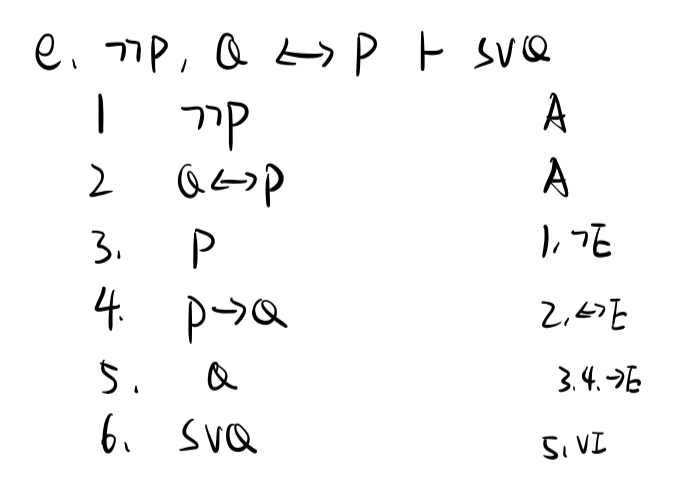 e. ¬¬P, Q ↔ P ⊢ SVQ
1 ¬¬P A
2 Q↔P A
3. P 1, ¬E
4. P→Q 2, ↔E
5. Q 3.4. →E
6. SVQ 5, VI